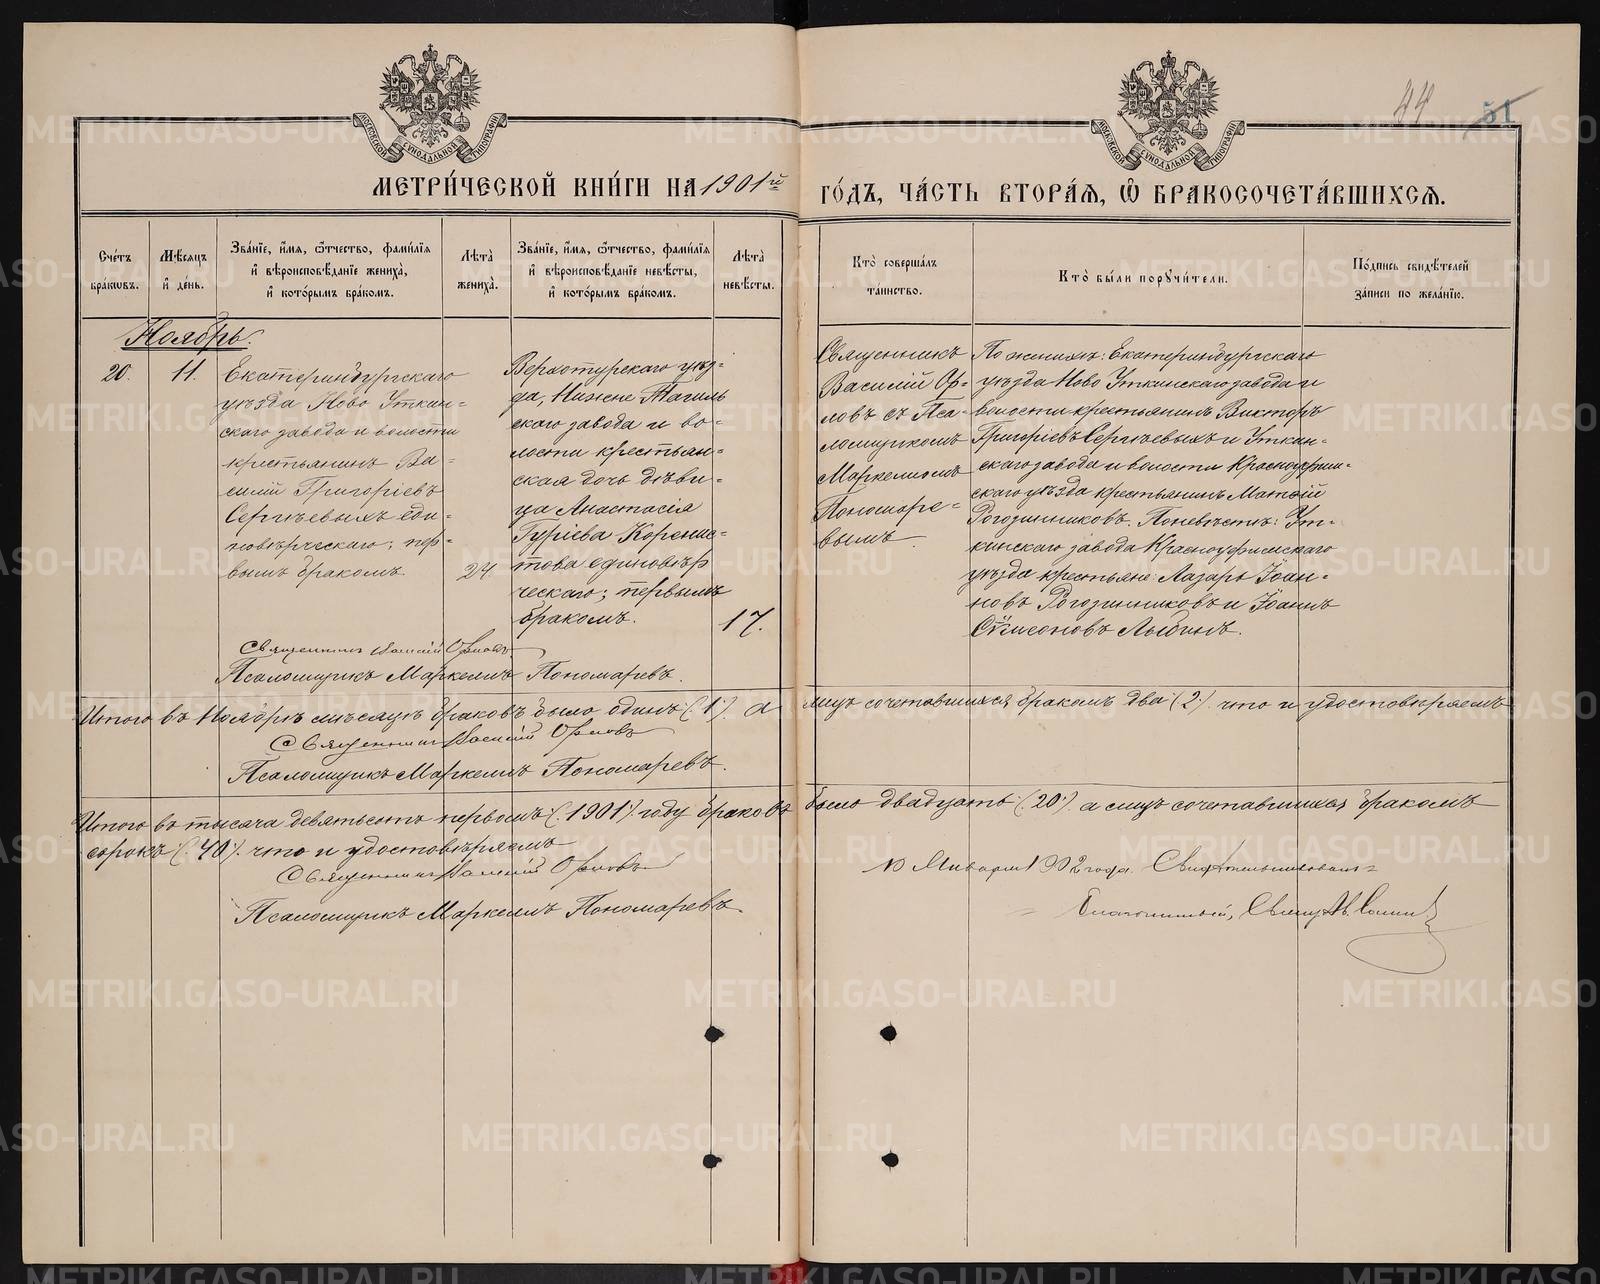 44 51
МОСКОВСКОЙ СУНОДАЛЬНОЙ ТИПОГРАФІИ
МОСКОВСКОЙ СУНОДАЛЬНОЙ ТИПОГРАФІИ
МЕТРИ́ЧЕСКОЙ КНИ́ГИ НА 1901й ГО́ДЪ, ЧА́СТЬ ВТОРА́Я, Ѽ БРАКОСОЧЕТА́ВШИХСЯ.
Сче́тъ бра́кѡвъ.
Мѣ́сяцъ и҆ де́нь.
Зва́нїе, и҆́мя, ѻ҆́тчество, фами́лїя
и҆ вѣроисповѣ́данїе жениха̀,
и҆ кото́рымъ бра́комъ.
Лѣ́та жениха̀.
Зва́нїе, и҆́мя, ѻ҆́тчество, фами́лїя
и҆ вѣроисповѣ́данїе невѣ́сты,
и҆ кото́рымъ бра́комъ.
Лѣ́та невѣ́сты.
Кто̀ соверша́лъ та́инство.
Кто̀ бы́ли порꙋчи́тели.
По́дпись свидѣ́телей за́писи по жела́нїю.
Ноябрь.
20.
11.
Екатеринбургскаго
уѣзда Ново Уткин-
скаго завода и волости
крестьянинъ Ва-
силій Григоріевъ
Сергѣевыхъ еди-
новѣрческаго; пер-
вымъ бракомъ.
24
Верхотурскаго уѣз-
да, Нижне Тагиль
скаго завода и во-
лости крестьян-
ская дочь дѣви-
ца Анастасія
Гуріева Коренис-
това единовѣр
ческаго; первымъ
бракомъ.
17.
Священникъ
Василій Ор-
ловъ съ Пса-
ломщикомъ
Маркелломъ
Пономаре-
вымъ.
По женихѣ: Екатеринбургскаго
уѣзда Ново Уткинскаго завода и
волости крестьянинъ Викторъ
Григоріевъ Сергѣевыхъ и Уткин-
скаго завода и волости Красноуфим-
скаго уѣзда крестьянинъ Матѳій
Рогозинниковъ. По невѣстѣ: Ут-
кинскаго завода Красноуфимскаго
уѣзда крестьяне Лазарь Іоан-
новъ Рогозинниковъ и Іоаннъ
Сѵмеоновъ Лыбинъ.
Священникъ Василій Орловъ
Псаломщикъ Маркеллъ Пономаревъ.
Итого въ Ноябрѣ мѣсяцѣ браковъ было одинъ (.1.). а лицъ сочетавшихся бракомъ два (2). что и удостовѣряемъ
Священникъ Василій Орловъ
Псаломщикъ Маркеллъ Пономаревъ.
Итого въ тысяча девятьсотъ первомъ (.1901.). году браковъ было двадцать (.20.). а лицъ сочетавшихся бракомъ
сорокъ (.40.). что и удостовѣряемъ
Священникъ Василій Орловъ
Псаломщикъ Маркеллъ Пономаревъ.
10 Января 1902 года. Свидѣтельствовалъ
Благочинный, Священ.
METRIKI.GASO-URAL.RU